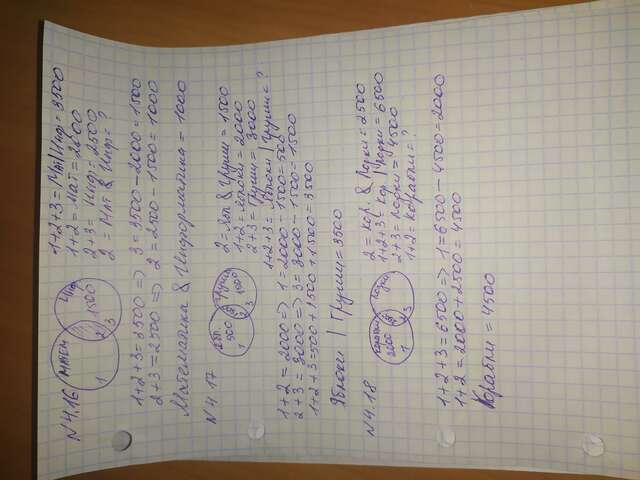 N 4.16
матем
инф
1
2
3
1500
1+2+3 = Мат|Инф = 3500
1+2 = Мат = 2000
2+3 = Инф = 2500
2 = Мат & Инф = ?
1+2+3=3500 => 3 = 3500-2000 = 1500
2+3=2500 => 2 = 2500-1500 = 1000
Математика & Информатика = 1000
N 4.17
ябл.
груши
500
1
2
3
1500
2 = Ябл & Груши = 1500
1+2 = Яблоки = 2000
2+3 = Груши = 3000
1+2+3 = Яблоки | Груши = ?
1+2 = 2000 => 1 = 2000 - 1500 = 500
2+3 = 3000 => 3 = 3000 - 1500 = 1500
1+2+3 = 500+1500+1500 = 3500
Яблоки | Груши = 3500
N 4.18
корабли
лодки
2000
1
2
3
2 = Кор. & Лодки = 2500
1+2+3 = Кор | Лодки = 6500
2+3 = Лодки = 4500
1+2 = Корабли = ?
1+2+3 = 6500 => 1 = 6500 - 4500 = 2000
1+2 = 2000 + 2500 = 4500
Корабли = 4500